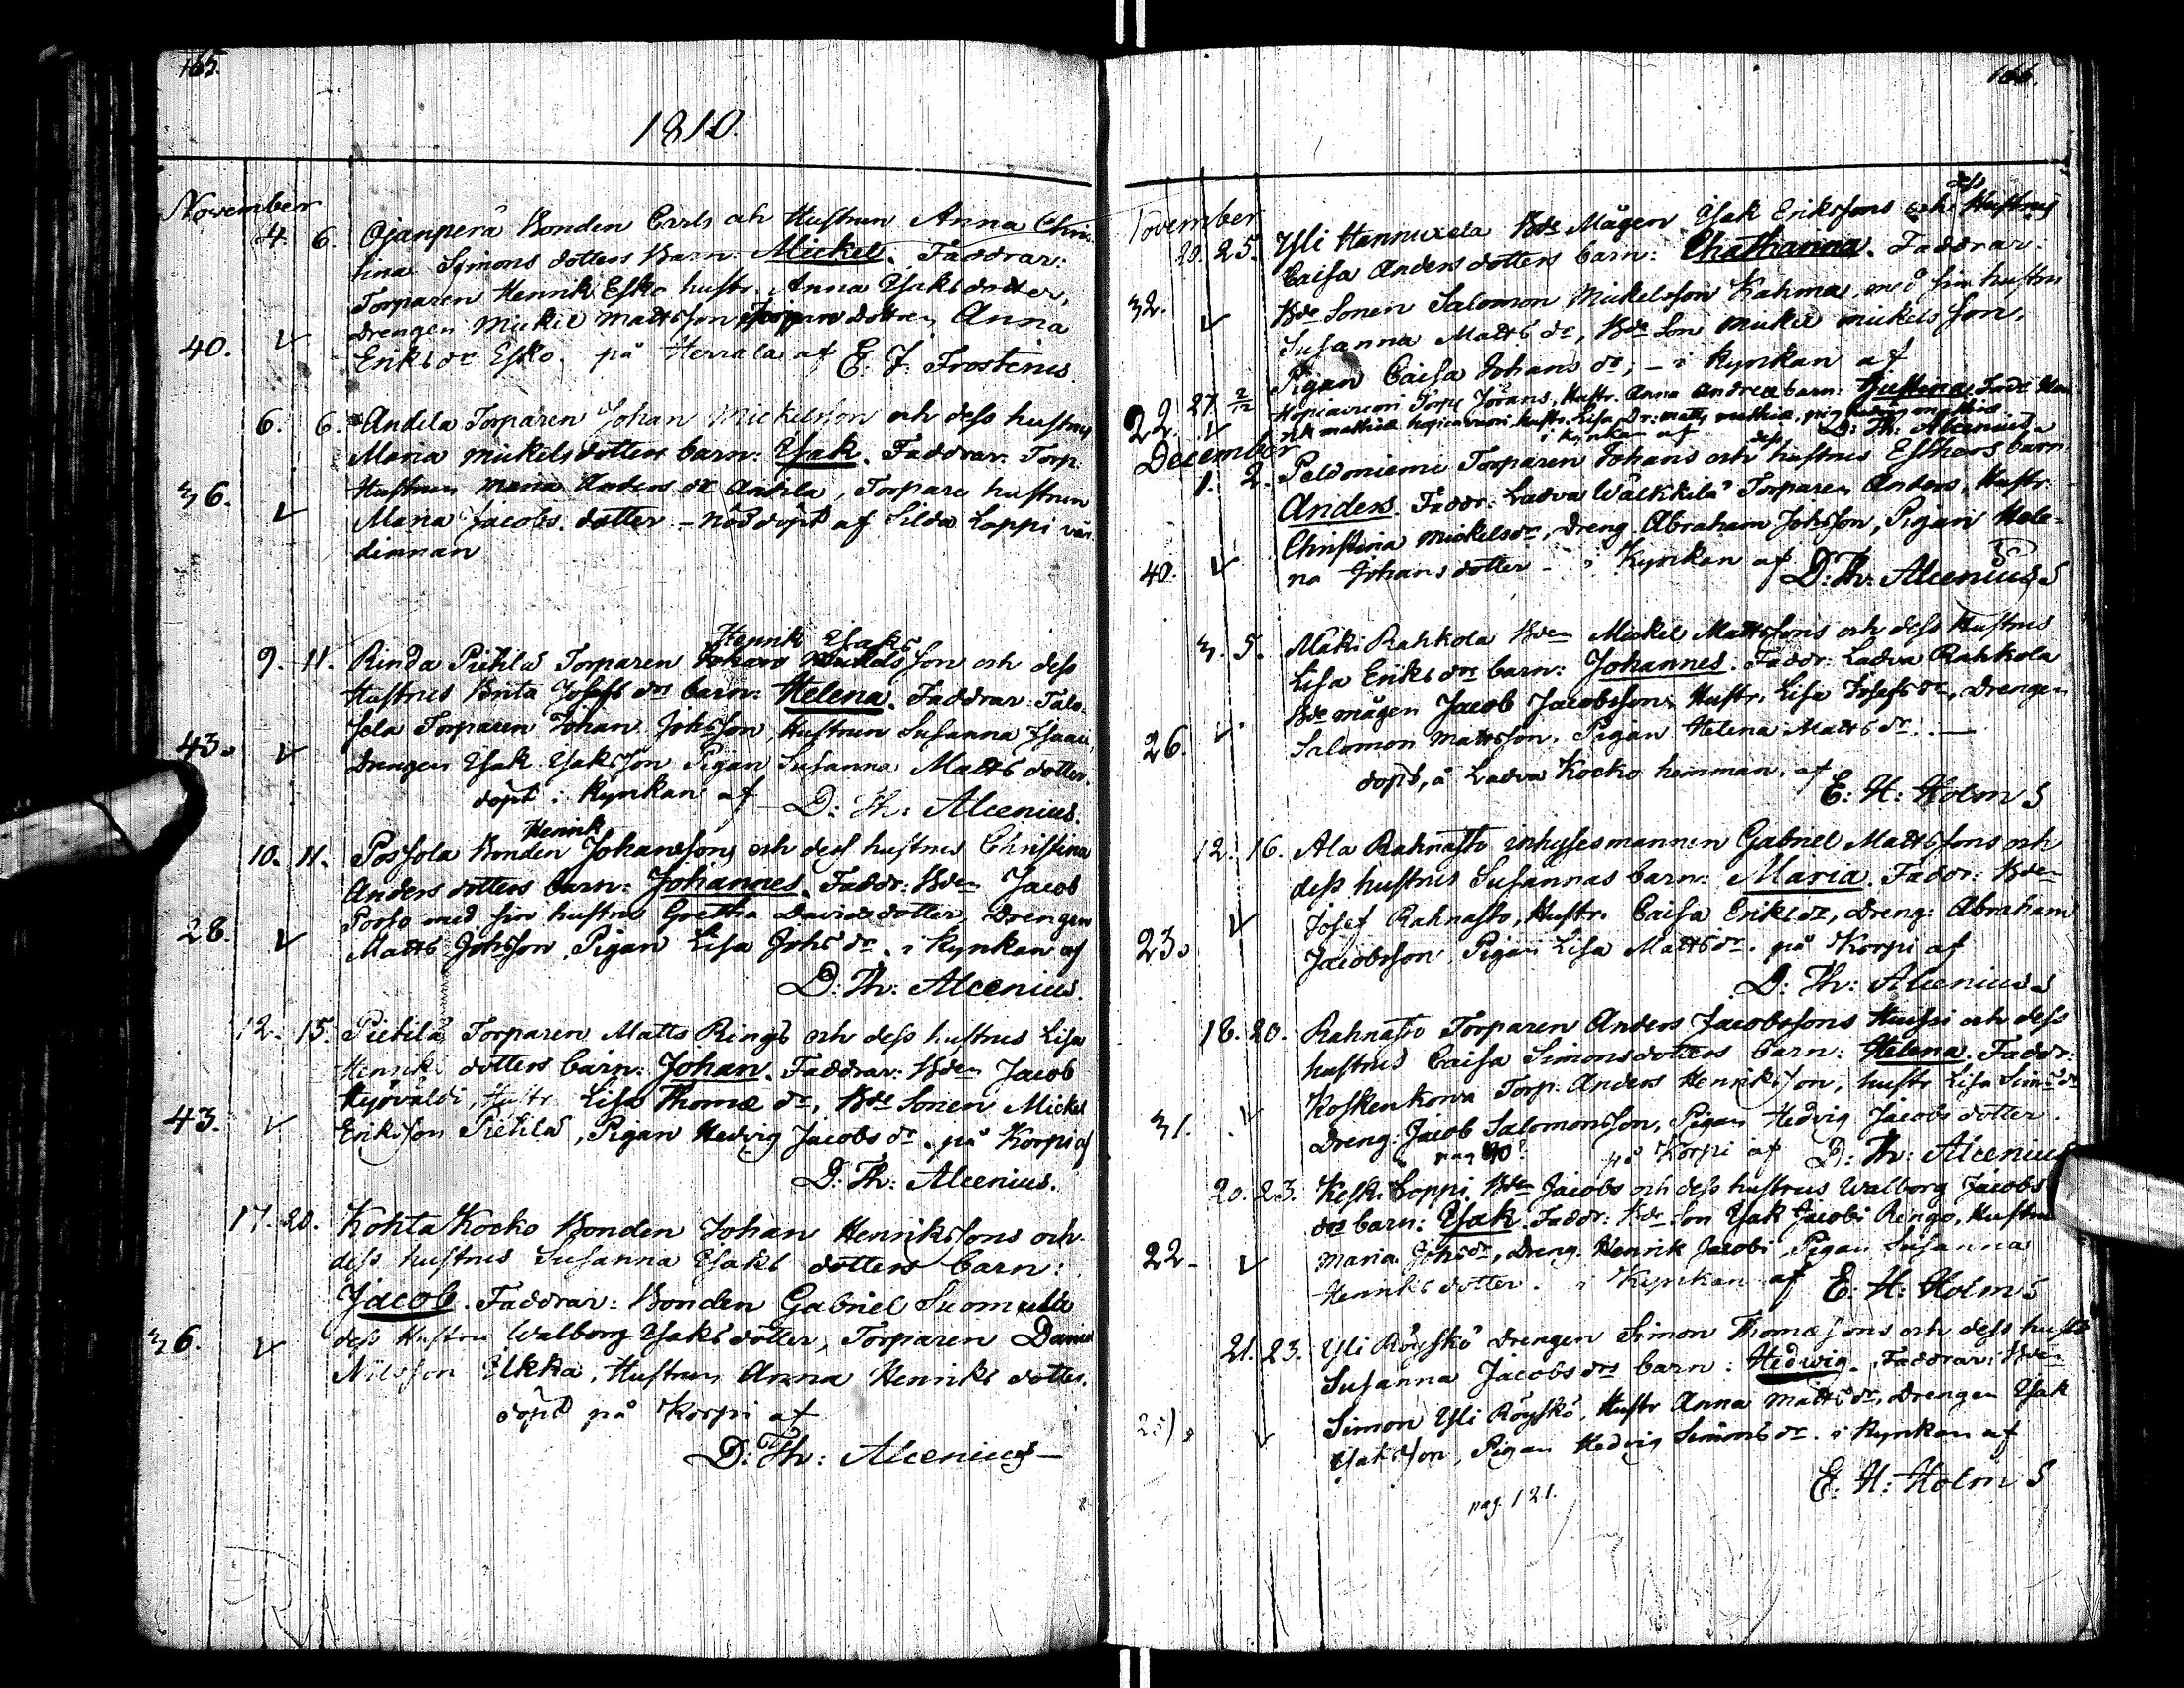 165.
1810.
November
4. 6. Ojanperä Bonden Errls och Hustrun Anna Chris-
tina Simons dotters Barn: Mickel. Faddrar:
Torparen Henrik Esko hustr. Anna Isaks dotter,
Drengen Mickel Mattsson dottren Anna
40. Eriks dr Esko. på Herrala af E. J. Frostenus.
6. 6. Andila Torparen Johan Mickelsson och dess hustrus
Maria Mickels dotters barn: Isak. Faddrar: Torp:
36. Hustrun Maria Anders dr Andila, Torpare hustrun
Maria Jacobs dotter – nöddöpt af Silda Loppi vär-
dinnan
Henrik Isaks
9. 11. Rinda Pietilä Torparen Johans Mickels son och dess
Hustrus Brita Josefs drs barn: Helena. Faddrar: Talo-
43. sela Torparen Johan Johsson, Hustrun Susanna Isaac,
Drengen Isak Isaksson Pigan Susanna Matts dotter.
döpt i Kyrkan af D: Th: Alcenius.
Henrik
10. 11. Possola Bonden Johanssons och dess hustrus Christina
Anders dotters barn: Johannes. Faddr: Bden Jacob
28. Porso med sin hustru Gretha Davidsdotter, Drengen
Matts Johsson, Pigan Lisa Johs dr. i Kyrkan af
D: Th: Alcenius.
12. 15. Pietilä Torparen Matts Rings och dess hustrus Lisa
Henriks dotters barn: Johan. Faddrar: Bden Jacob
43. Hustr. Lisa Thomæ dr, Bde Sonen Mickel
Eriksson Pietilä, Pigan Hedvig Jacobs dr. på Korpi af
D: Th: Alcenius.
17. 20. Kohta Kocko Bonden Johan Henrikssons och
dess hustrus Susanna Isaks dotters barn:
Jacob. Faddrar: Bonden Gabriel Suomuela
36. dess Hustru Walborg Isaks dotter, Torparen Daniel
Nilsson Ukka, Hustrun Anna Henriks dotter.
döpt på Korpi af
D: Th: Alcenius –
166.
November
dess
20. 25. Yli Hannuxela Bds Mågen Isak Erikssons och Hustrus
Caisa Anders dotters barn: Chatharina. Faddrar:
32. Bde Sonen Salomon Mickelsson Kahma, med sin hustru
Susanna Matts dr, Bde Son Mickel Mickels Son,
Pigan Caisa Johans dr; – i Kyrkan af
22. 27. 2/12 Hopiavuori Torp: Jörans, Hustr. Anna Andreæ barn: Justina. Fadd: Hen-
rik Mathiæ hopiavuori, hustr. Lisa
i Kyrkan af D: Th: Alcenius
December
dess
1. 2. Peldoniemi Torparen Johans och hustrus Esthers barn
Anders. Faddr: Ladva Wälkkilä Torparen Anders, Hustr.
Christina Mickelsdr, Dreng Abraham Johsson, Pigan Hele-
40. na Johans dotter – i Kyrkan af D: Th: Alcenius
3. 5. Mäki Rahkola Bden Mickel Mattssons och dess Hustrus
Lisa Eriks drs barn: Johannes. Faddr: Ladva Rahkola
Bde mågen Jacob Jacobsson, Hustr. Lisa Josefs dr, Drengen
26. Salomon Mattsson, Pigan Helena Matts dr. –
döpt, å Ladva Kocko hemman, af
E: H: Holm S
12. 16. Ala Rahnasto inhysesmannen Gabriel Mattssons och
dess hustrus Susannas barn: Maria. Faddr: Bden
Josef Rahnasto, Hustr. Caisa Eriks dr, Dreng: Abraham
23. Jacobsson, Pigan Lisa Matts dr. på Korpi af
D: Th: Alcenius
18. 20. Rahnasto Torparen Anders Jacobssons och dess
hustrus Caisa Simonsdotters barn: Helena. Faddr:
Koskenkorva Torp: Anders Henriksson, hustr Lisa Sim: dr
31. Dreng: Jacob Salomonsson, Pigan Hedvig Jacobs dotter.
pag 90 på Korpi af D: Th: Alcenius
20. 23. Keski Loppi Bden Jacobs och dess hustrus Walborg Jacobs
drs barn: Isak. Faddr: Bde Son Isak Jacobs Rengo, Hustru
22. Maria Johsdr, Dreng. Henrik Jacobs Pigan Susanna
Henriks dotter. i Kyrkan af E: H: Holm S
21. 23. Yli Röyskö Drengen Simon Thomæsons och dess hustrus
Susanna Jacobs drs barn: Hedvig. Faddrar: Bden
25. Simon Yli Röyskö, Hustr Anna Matts dr, Drengen Isak
Isaksson, Pigan Hedvig Simons dr. i Kyrkan af
E: H: Holm S
pag. 121.